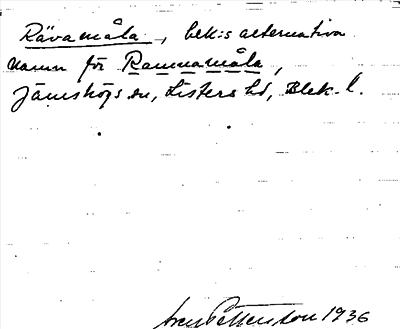 Rävamåla, bek:s alternativa
namn för Ramnamåla,
Jämshögs sn, Listers hd, Blek. l.
1936